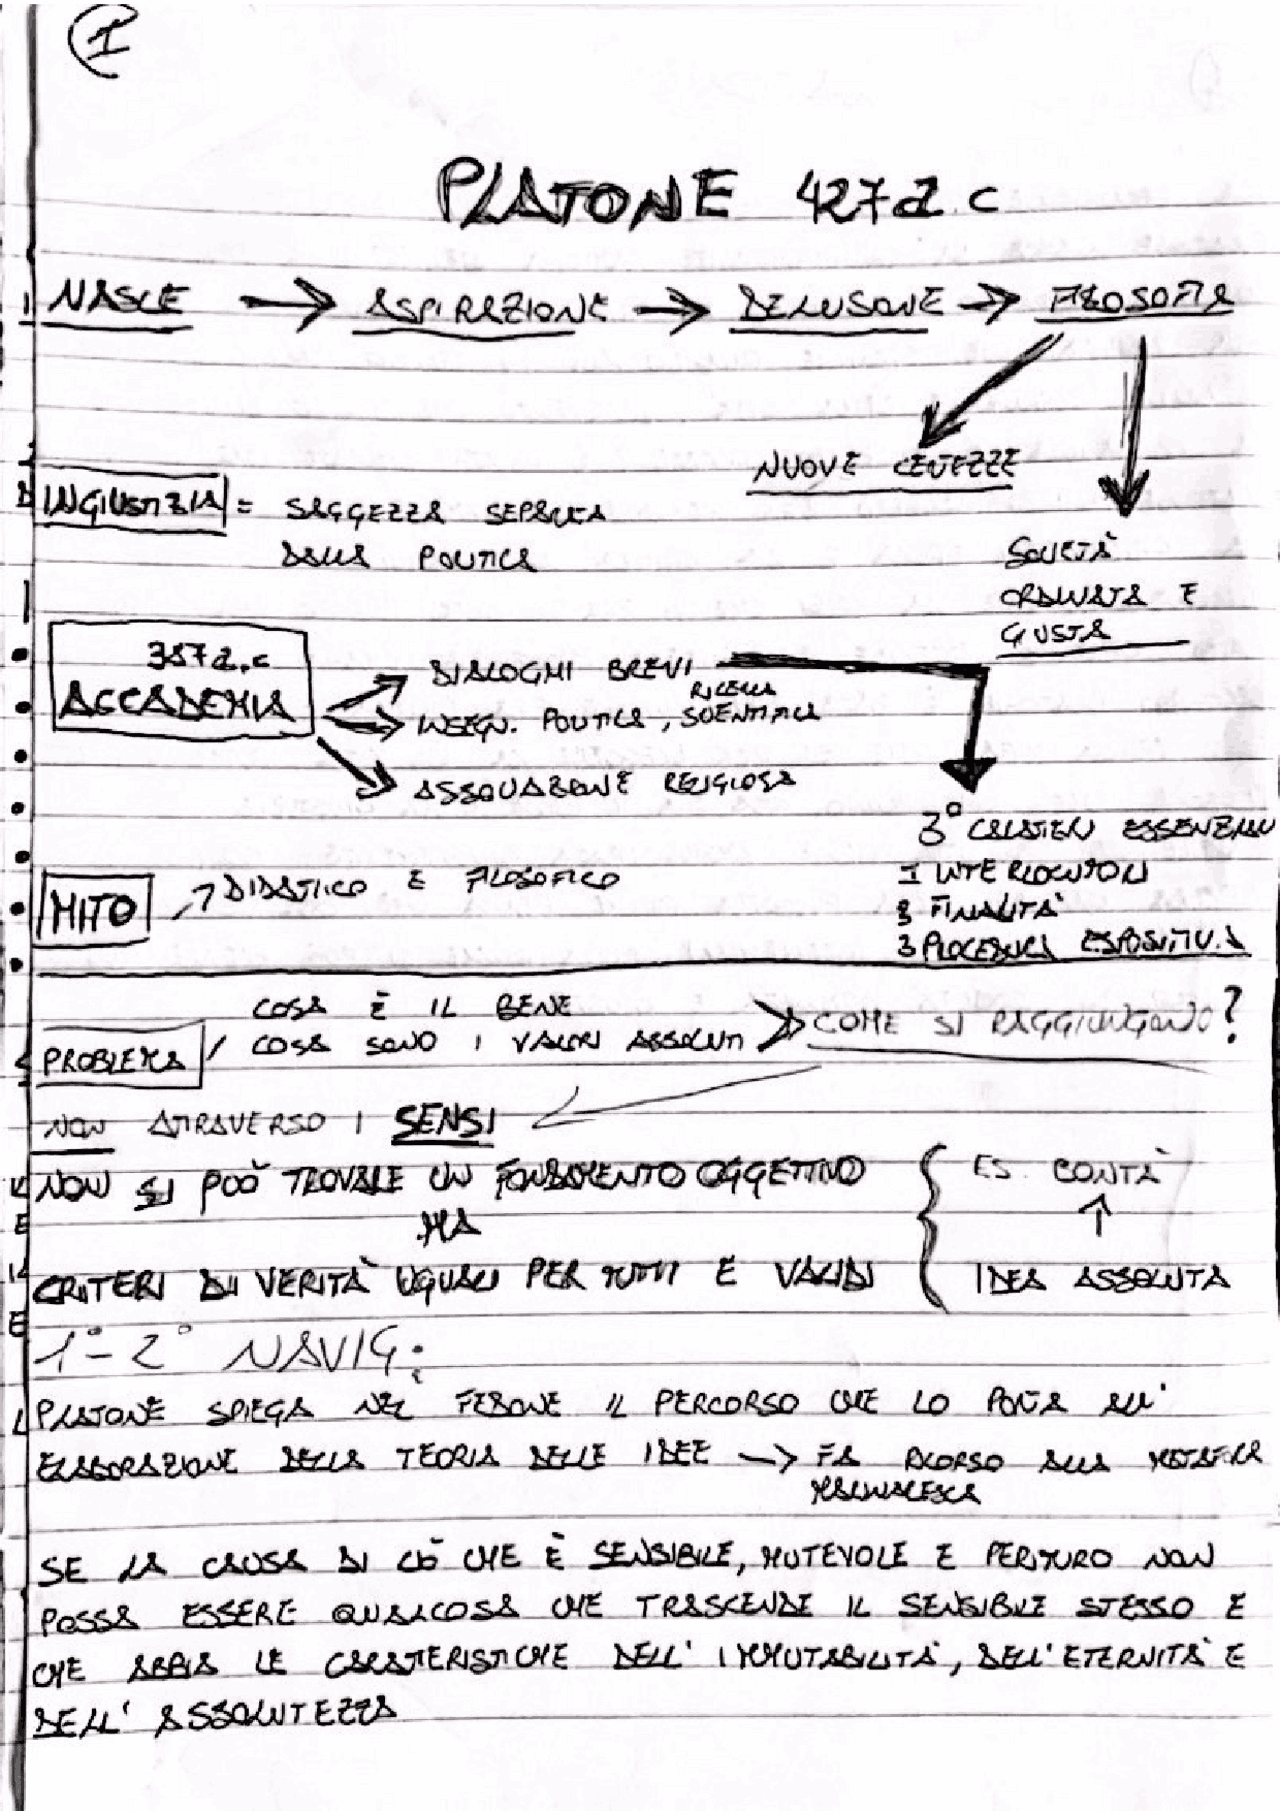 1
PLATONE 427 a.c
NASCE → ASPIRAZIONE → DELUSONE → FILOSOFIA
NUOVE CETEZZE
INGIUSTIZIA = SAGGEZZA SEPARATA
DALLA POLITICA
SOCIETÀ
ORDINATA E
GIUSTA
387 a.c
ACCADEMIA
DIALOGHI BREVI
RICERCA
INSEGN. POLITICA, SCIENTIFICA
ASSOCIAZIONE RELIGIOSA
3° CARATTERI ESSENZIALI
1 INTERLOCUTORI
2 FINALITÀ
3 PROCEDURA ESPOSITIVA
MITO → DIDATTICO E FILOSOFICO
COSA È IL BENE
PROBLEMA / COSA SONO I VALORI ASSOLUTI
COME SI RAGGIUNGONO?
NON ATTRAVERSO I SENSI
NON SI PUÒ TROVARE UN FONDAMENTO OGGETTIVO
MA
CRITERI DI VERITÀ UGUALI PER TUTTI E VALIDI
ES. BONTÀ
↑
IDEA ASSOLUTA
1°-2° NAVIG:
PLATONE SPIEGA NEL FEDONE IL PERCORSO CHE LO PORTA ALL'
ELABORAZIONE DELLA TEORIA DELLE IDEE → FA RICORSO ALLA METAFORA
MARINARESCA
SE LA CAUSA DI CIÒ CHE È SENSIBILE, MUTEVOLE E PERITURO NON
POSSA ESSERE QUALCOSA CHE TRASCENDE IL SENSIBILE STESSO E
CHE ABBIA LE CARATTERISTICHE DELL'IMMUTABILITÀ, DELL'ETERNITÀ E
DELL'ASSOLUTEZZA